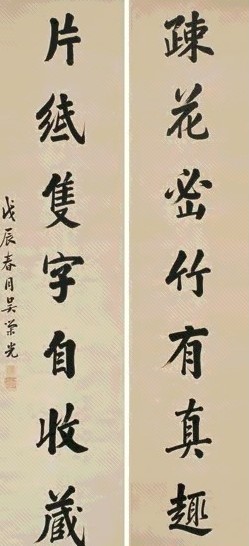 疎花密竹有真趣
片紙隻字自收藏
戊辰春月吴榮光